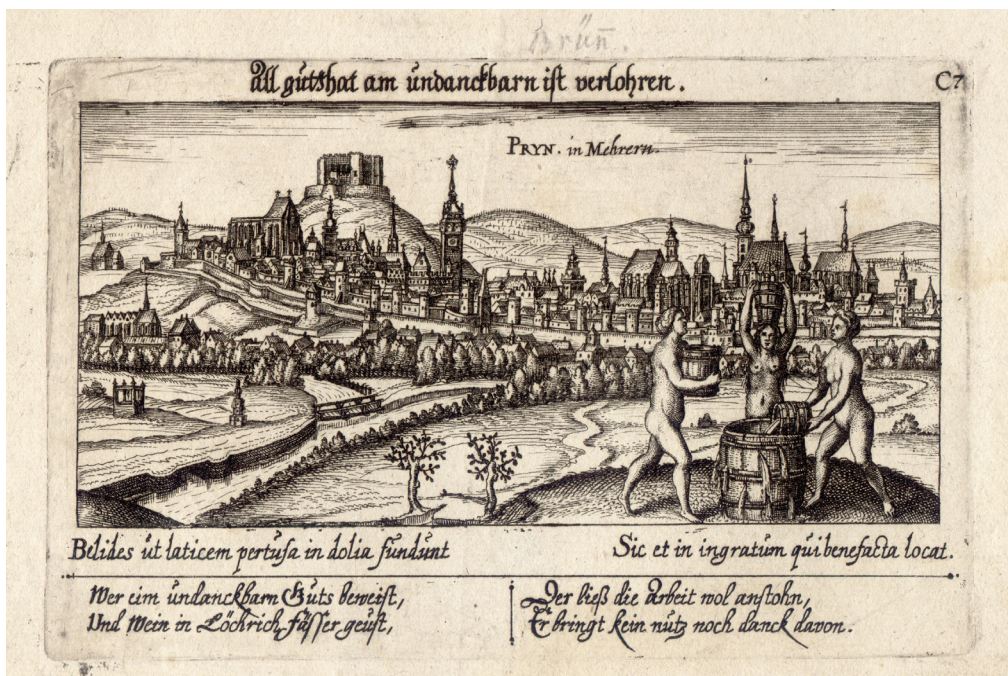 Brün̄.
All gůtthat am undanckbarn ist verlohren.
C7
PRYN. in Mehrern.
Belides ůt laticem pertůsa in dolia fůndůnt
Sic et in ingratům qui benefacta locat.
Wer eim ůndanckbarn Gůts beweist,
Und Wein in Löchrich fässer geůst,
Der ließ die arbeit wol anstohn,
Er bringt kein nůtz noch danck davon.